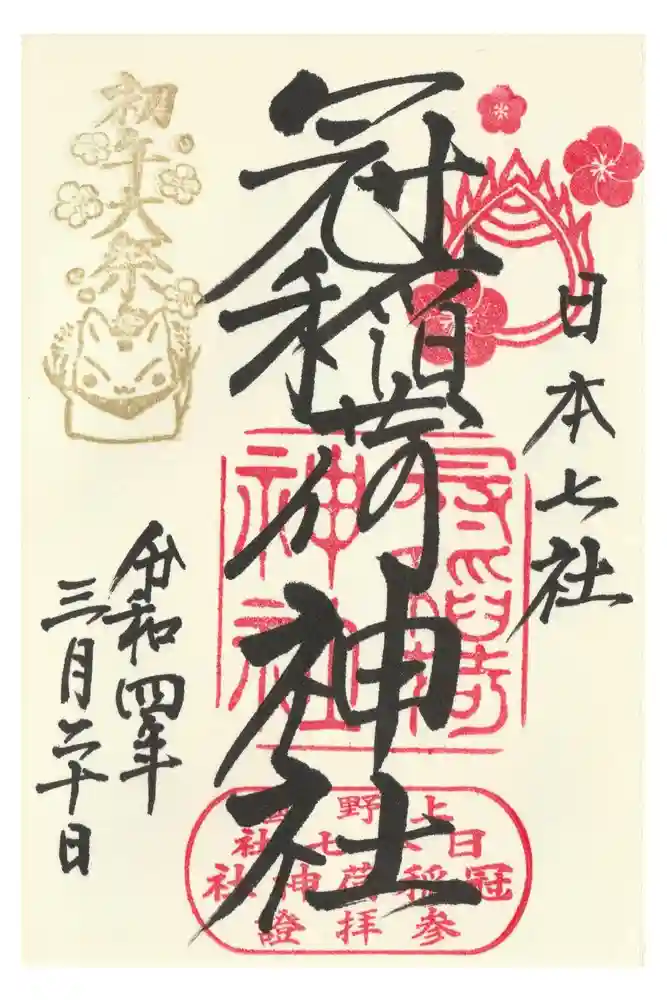 日本七社
冠稲荷神社
初午大祭
令和四年
三月二十日
冠稲荷
神社
上野國
日本七社
冠稲荷神社
参拝證